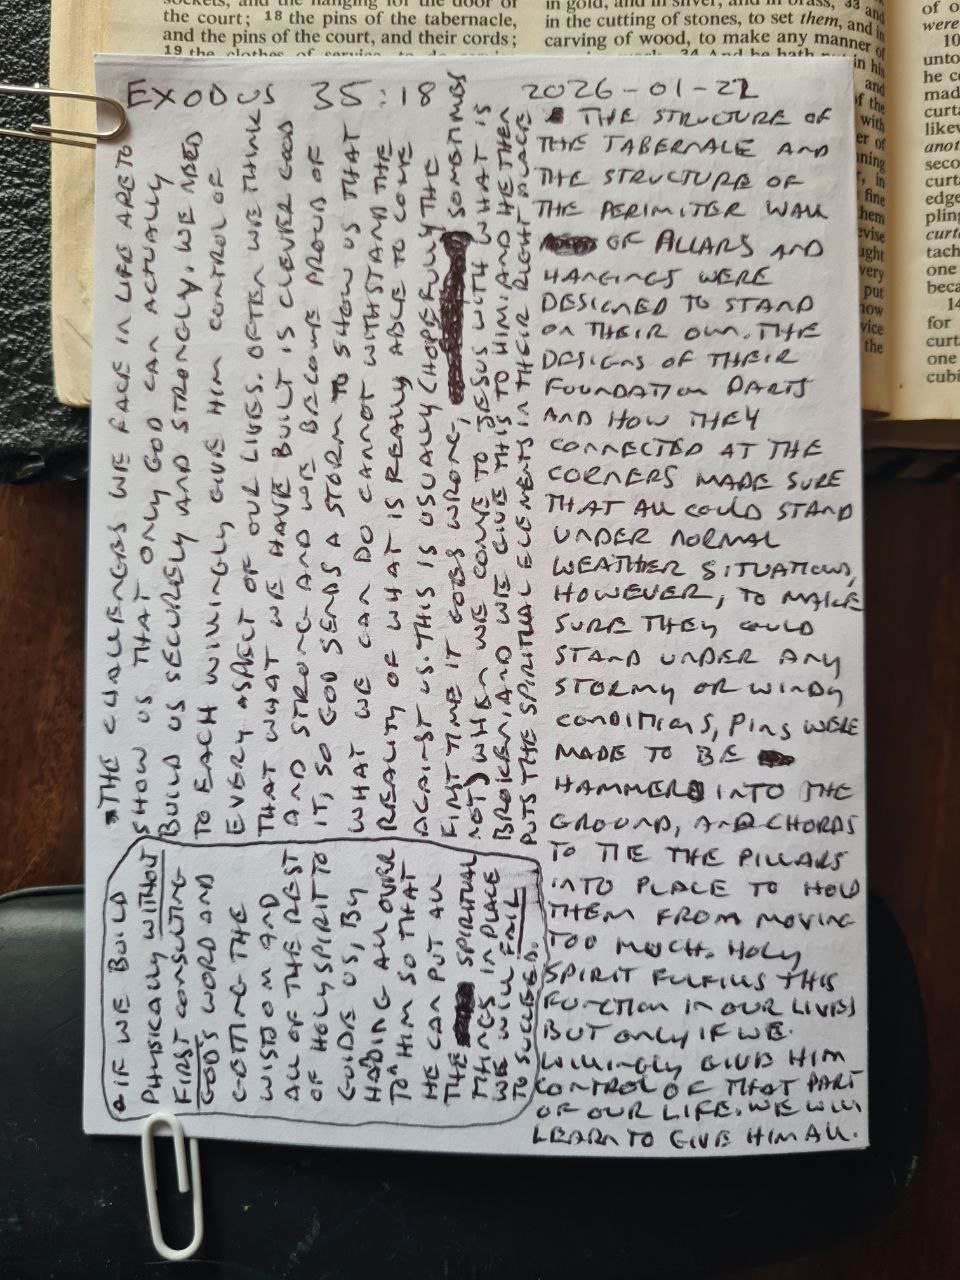 the court; 18 the pins of the tabernacle,
and the pins of the court, and their cords;
in gold, and in silver, and in brass, 33 and
in the cutting of stones, to set them, and in
carving of wood, to make any manner of
EXODUS 35:18 2026-01-22
• THE STRUCTURE OF
THE TABERNALE AND
THE STRUCTURE OF
THE PERIMITER WALL
OF PILLARS AND
HANGINGS WERE
DESIGNED TO STAND
ON THEIR OWN. THE
DESIGNS OF THEIR
FOUNDATION PARTS
AND HOW THEY
CONNECTED AT THE
CORNERS MADE SURE
THAT ALL COULD STAND
UNDER NORMAL
WEATHER SITUATIONS,
HOWEVER, TO MAKE
SURE THEY COULD
STAND UNDER ANY
STORMY OR WINDY
CONDITIONS, PINS WERE
MADE TO BE
HAMMERED INTO THE
GROUND, AND CHORDS
TO TIE THE PILLARS
INTO PLACE TO HOLD
THEM FROM MOVING
TOO MUCH. HOLY
SPIRIT FULFILLS THIS
FUNCTION IN OUR LIVES
BUT ONLY IF WE
WILLINGLY GIVE HIM
CONTROL OF THAT PART
OF OUR LIFE. WE WILL
LEARN TO GIVE HIM ALL.
• THE CHALLENGES WE FACE IN LIFE ARE TO
SHOW US THAT ONLY GOD CAN ACTUALLY
BUILD US SECURELY AND STRONGLY. WE NEED
TO EACH WILLINGLY GIVE HIM CONTROL OF
EVERY ASPECT OF OUR LIVES. OFTEN WE THINK
THAT WHAT WE HAVE BUILT IS CLEVER GOOD
AND STRONG AND WE BECOME PROUD OF
IT, SO GOD SENDS A STORM TO SHOW US THAT
WHAT WE CAN DO CANNOT WITHSTAND THE
REALITY OF WHAT IS REALLY ABLE TO COME
AGAINST US. THIS IS USUALLY (HOPEFULLY THE
FIRST TIME IT GOES WRONG, SOMETIMES
NOT) WHEN WE COME TO JESUS WITH WHAT IS
BROKEN AND WE GIVE THIS TO HIM AND HE THEN
PUTS THE SPIRITUAL ELEMENTS IN THEIR RIGHT PLACE
• IF WE BUILD
PHYSICALLY WITHOUT
FIRST CONSULTING
GOD'S WORD AND
GETTING THE
WISDOM AND
ALL OF THE REST
OF HOLY SPIRIT TO
GUIDE US, BY
HANDING ALL OVER
TO HIM SO THAT
HE CAN PUT ALL
THE SPIRITUAL
THINGS IN PLACE
WE WILL FAIL
TO SUCCEED.